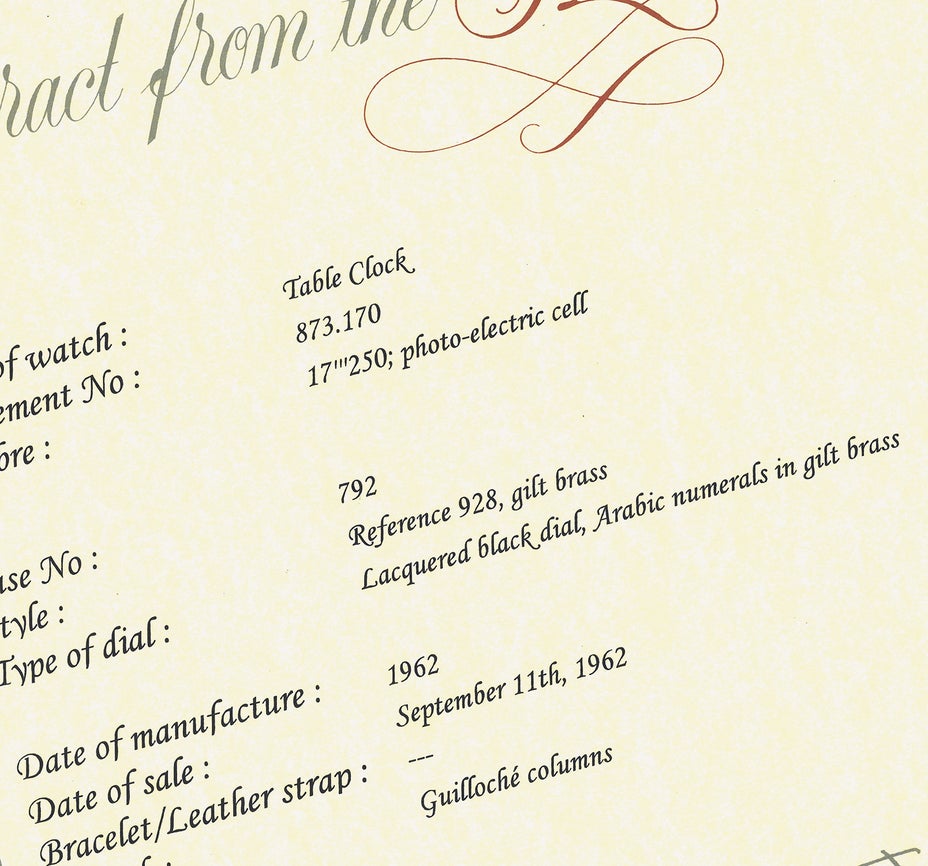 ract from the
of watch : Table Clock
ement No : 873.170
bre : 17'''250; photo-electric cell
ase No : 792
tyle : Reference 928, gilt brass
Type of dial : Lacquered black dial, Arabic numerals in gilt brass
Date of manufacture : 1962
Date of sale : September 11th, 1962
Bracelet/Leather strap : ---
Guilloché columns